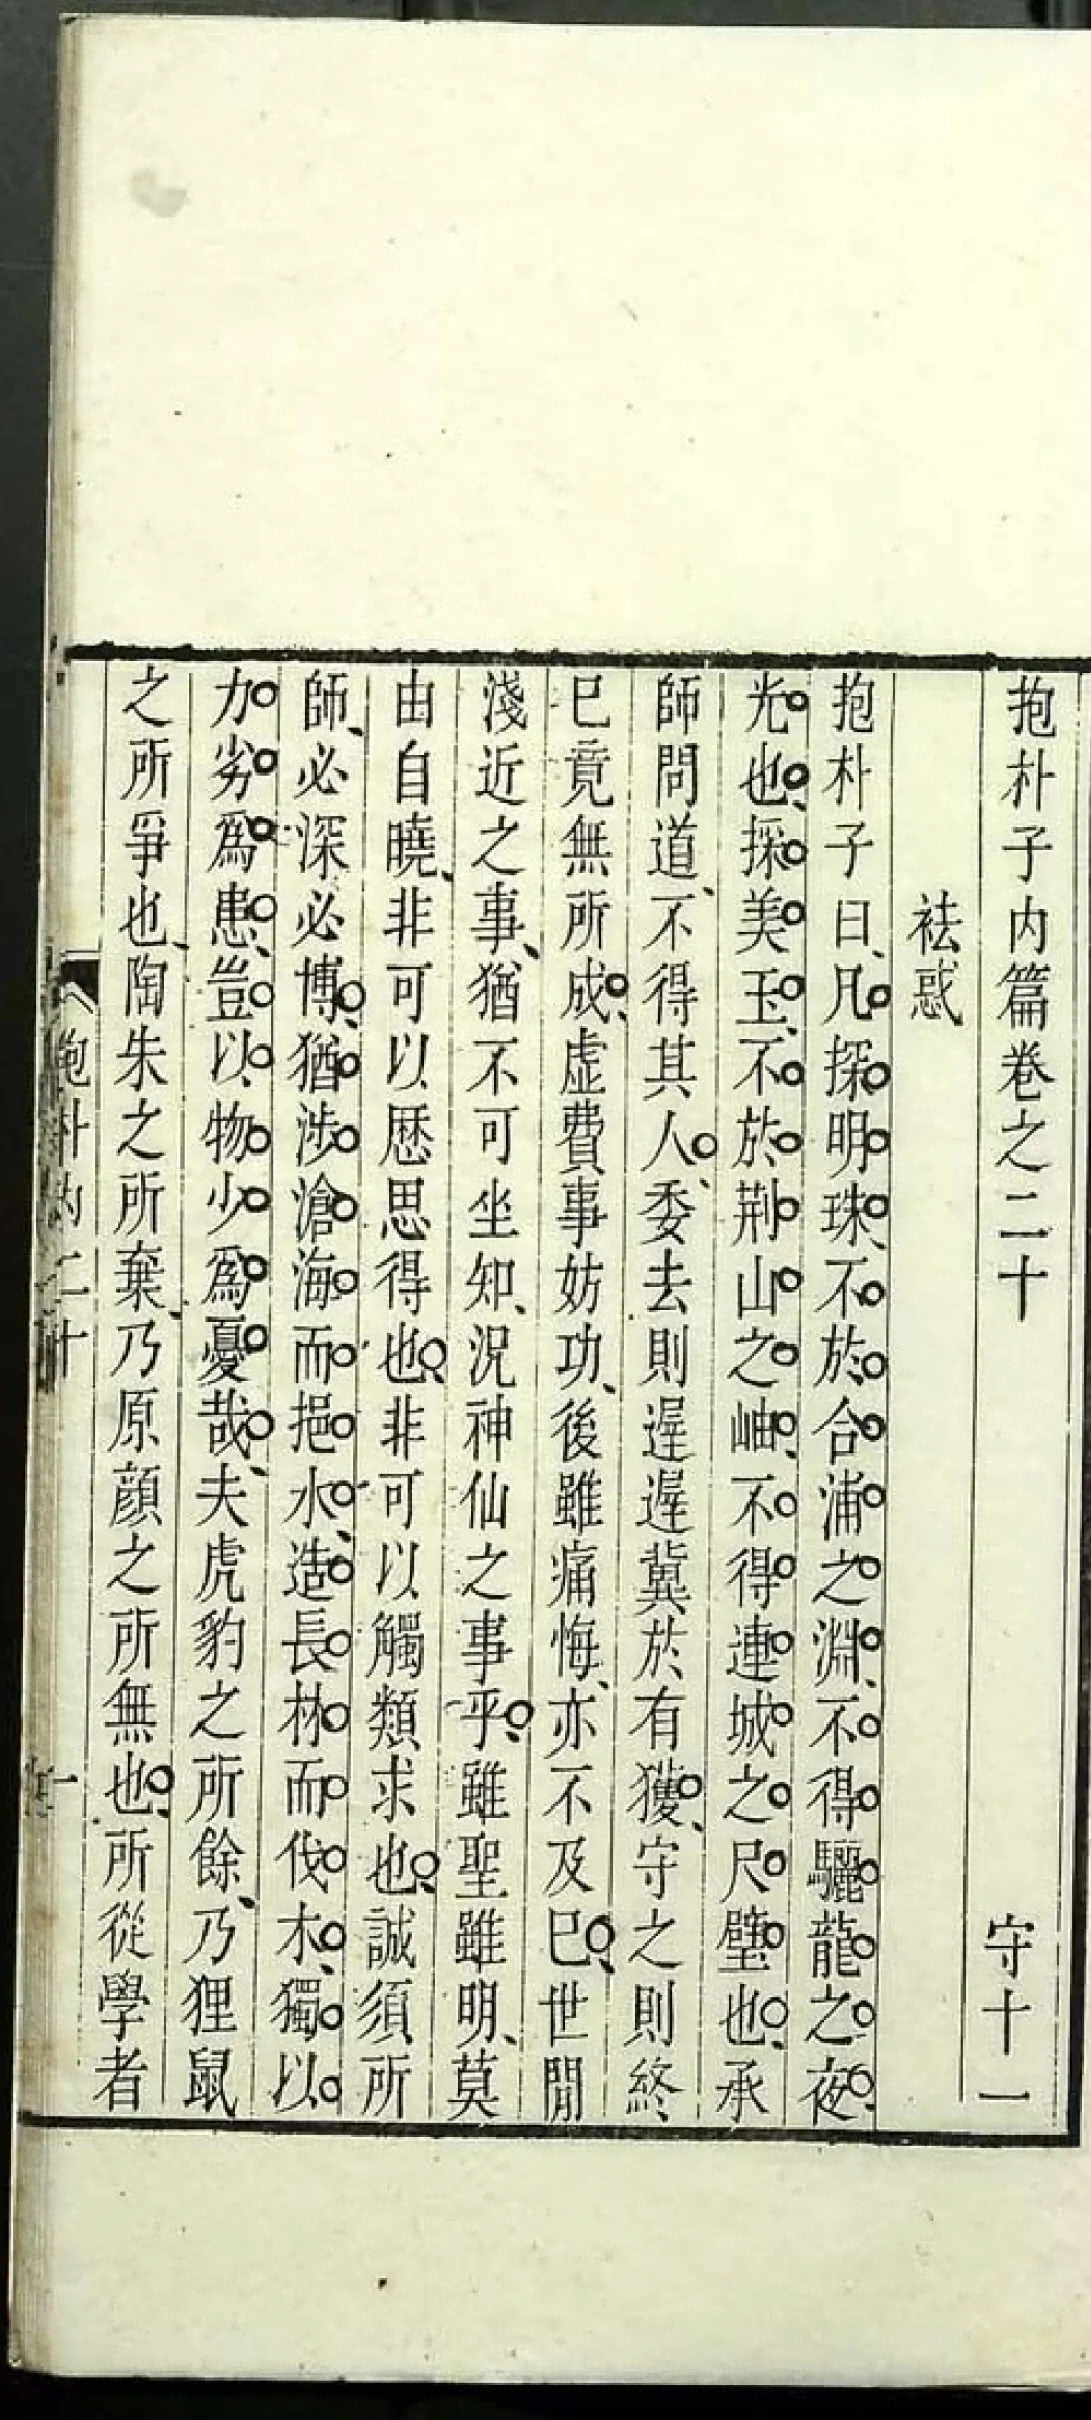 抱朴子内篇卷之二十 守十一
袪惑
抱朴子曰凡探明珠不於合浦之淵不得驪龍之夜
光也採美玉不於荆山之岫不得連城之尺璧也承
師問道不得其人委去則遲遲冀於有獲守之則終
已竟無所成虛費事妨功後雖痛悔亦不及已世間
淺近之事猶不可坐知況神仙之事乎雖聖雖明莫
由自曉非可以歷思得也非可以觸類求也誠須所
師必深必博猶涉滄海而挹水造長林而伐木獨以
力劣爲患豈以物少爲憂哉夫虎豹之所餘乃狸鼠
之所爭也陶朱之所棄乃原顔之所無也所從學者
抱朴内二十 一